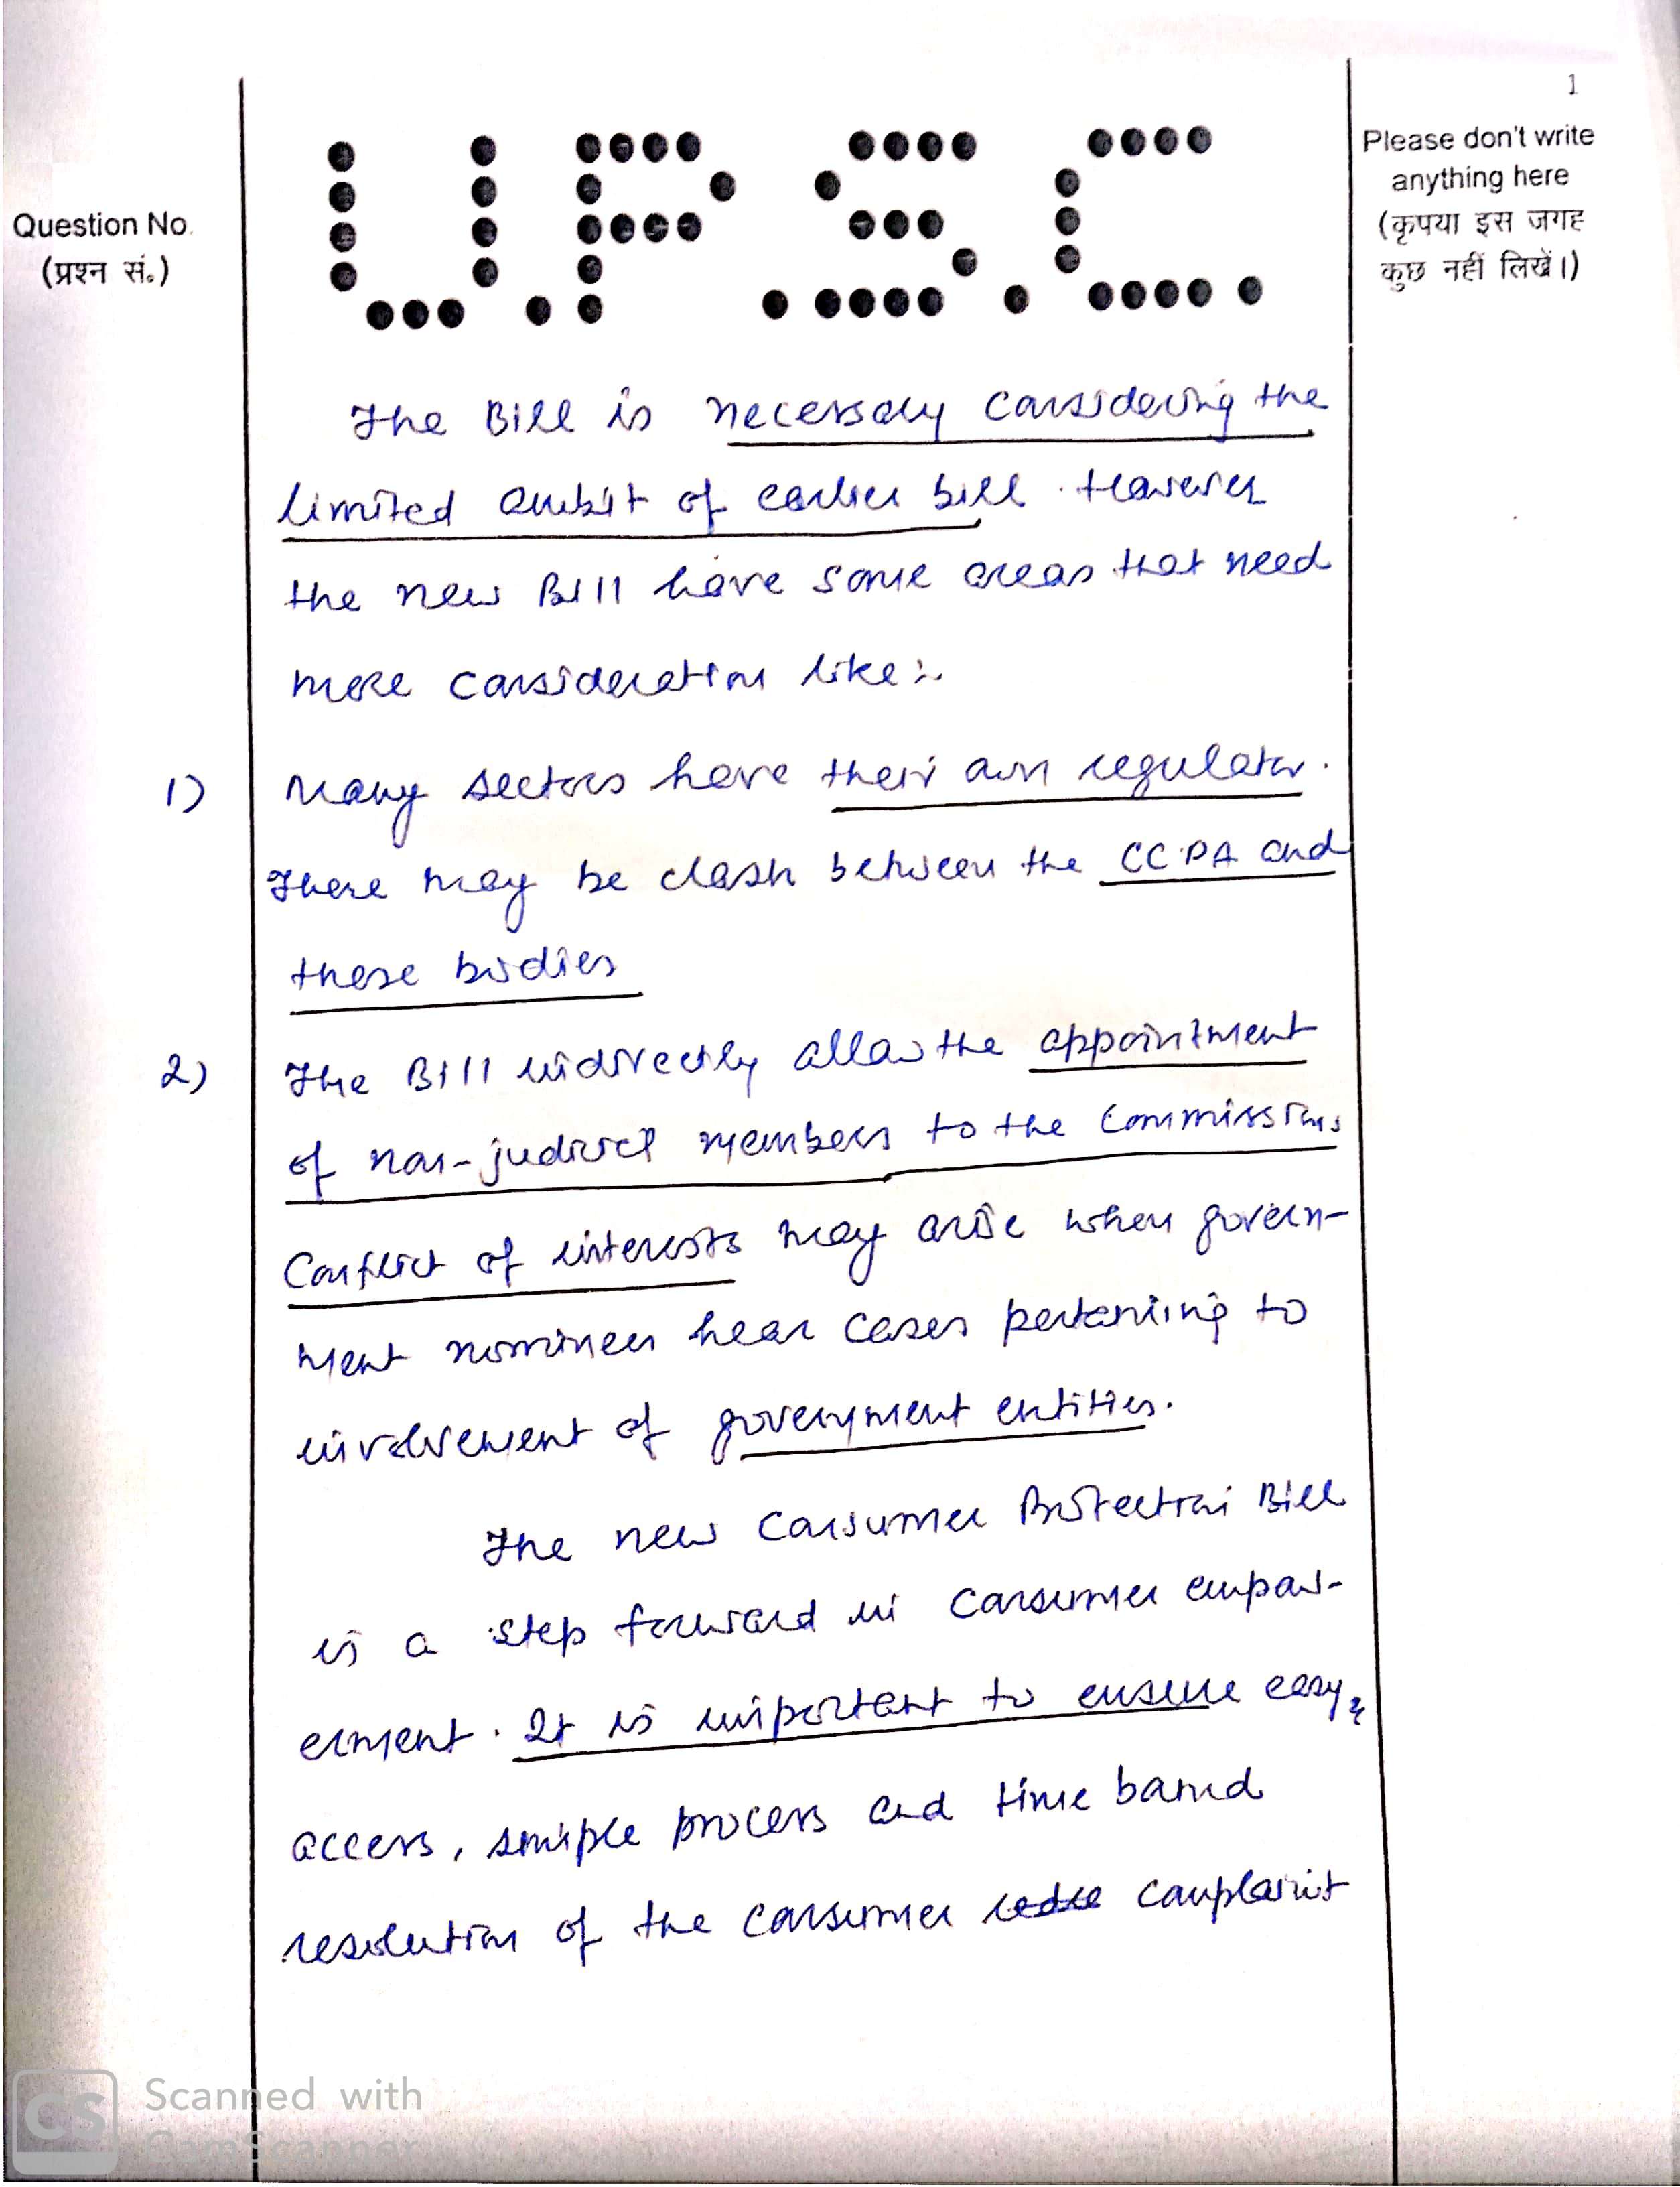 1
U.P.S.C.
Please don't write
anything here
(कृपया इस जगह
कुछ नहीं लिखें।)
Question No.
(प्रश्न सं.)
The Bill is necessary considering the
limited ambit of earlier bill. However
the new Bill have some areas that need
more consideration like:-
1) Many sectors have their own regulator.
There may be clash between the CCPA and
these bodies
2) The Bill indirectly allow the appointment
of non-judicial members to the Commissions
Conflict of interests may arise when govern-
ment nominees hear cases pertaining to
involvement of government entities.
The new Consumer Protection Bill
is a step forward in consumer empow-
erment. It is important to ensure easy
access, simple process and time bound
resolution of the consumer complaint
CS Scanned with
CamScanner